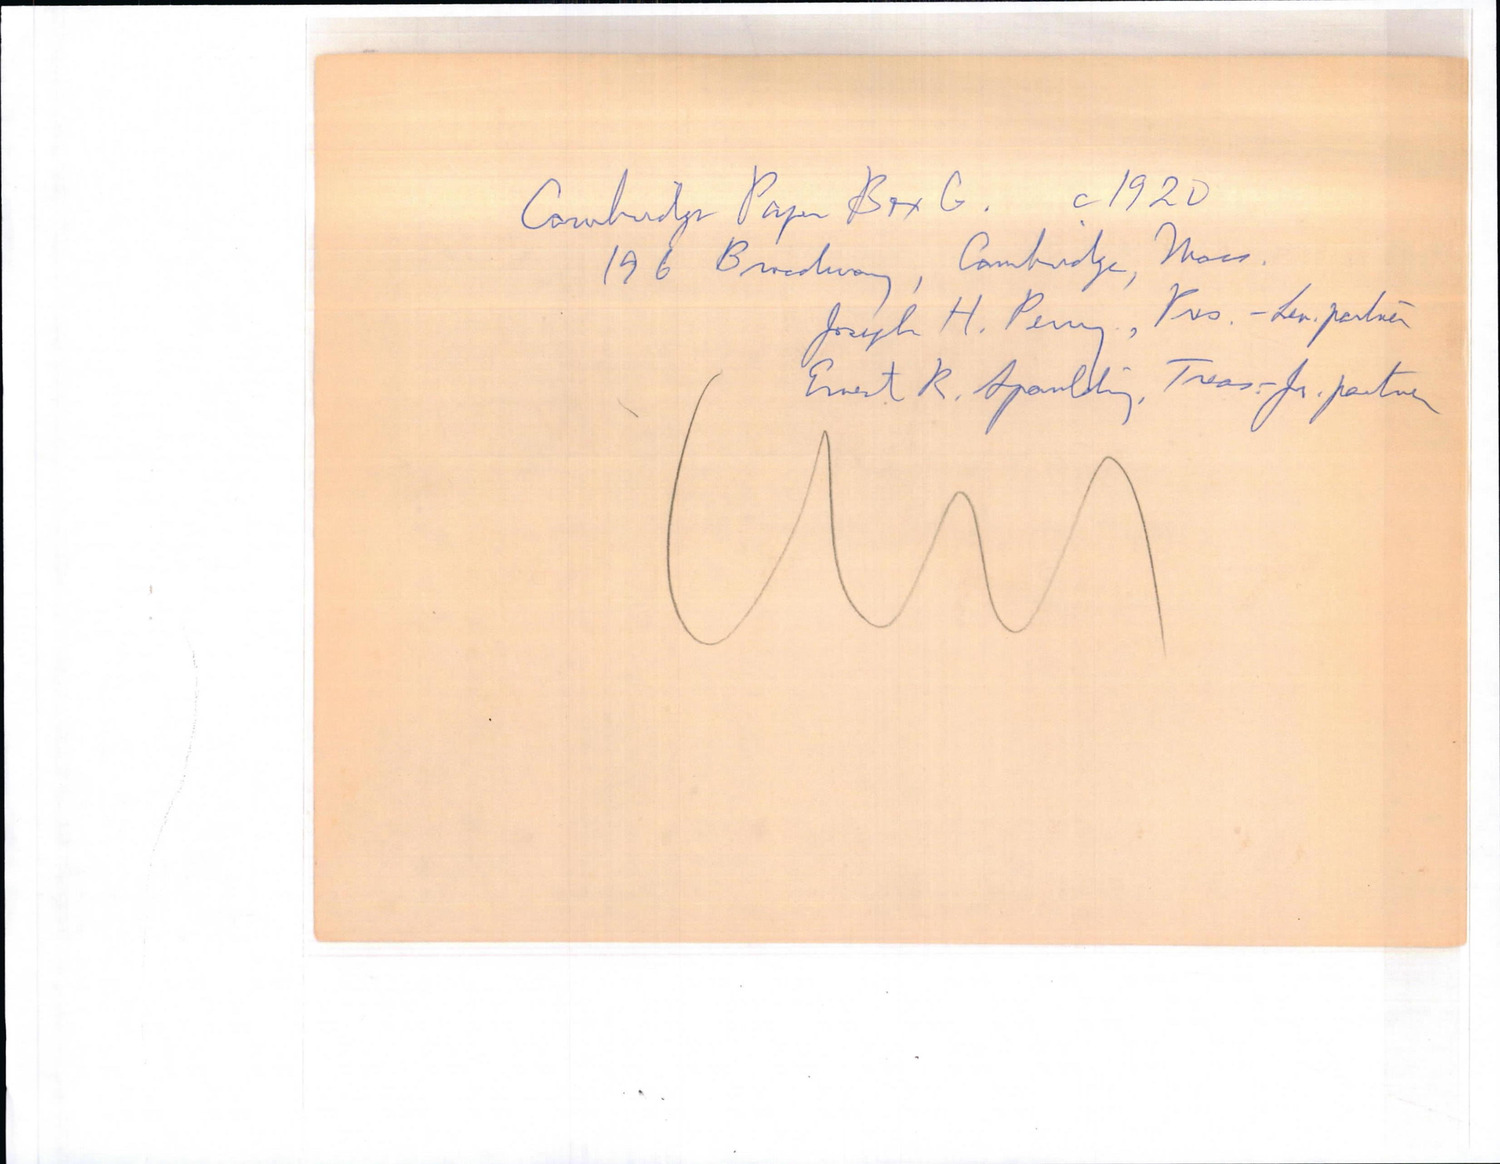 Cambridge Paper Box Co. c 1920
196 Broadway, Cambridge, Mass.
Joseph H. Perry, Pres. - Sen. partner
Ernest R. Spaulding, Treas. - Jr. partner